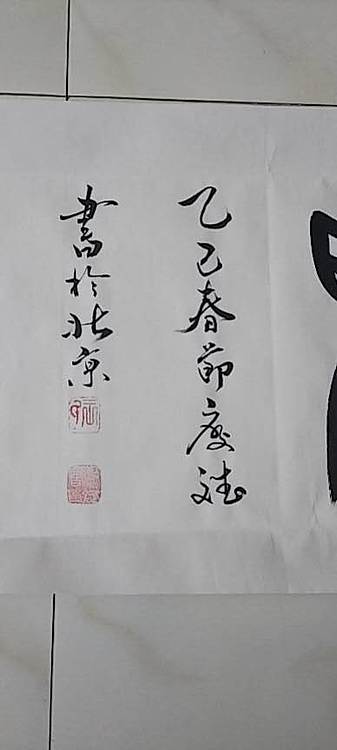 乙巳春節慶斌
書於北京